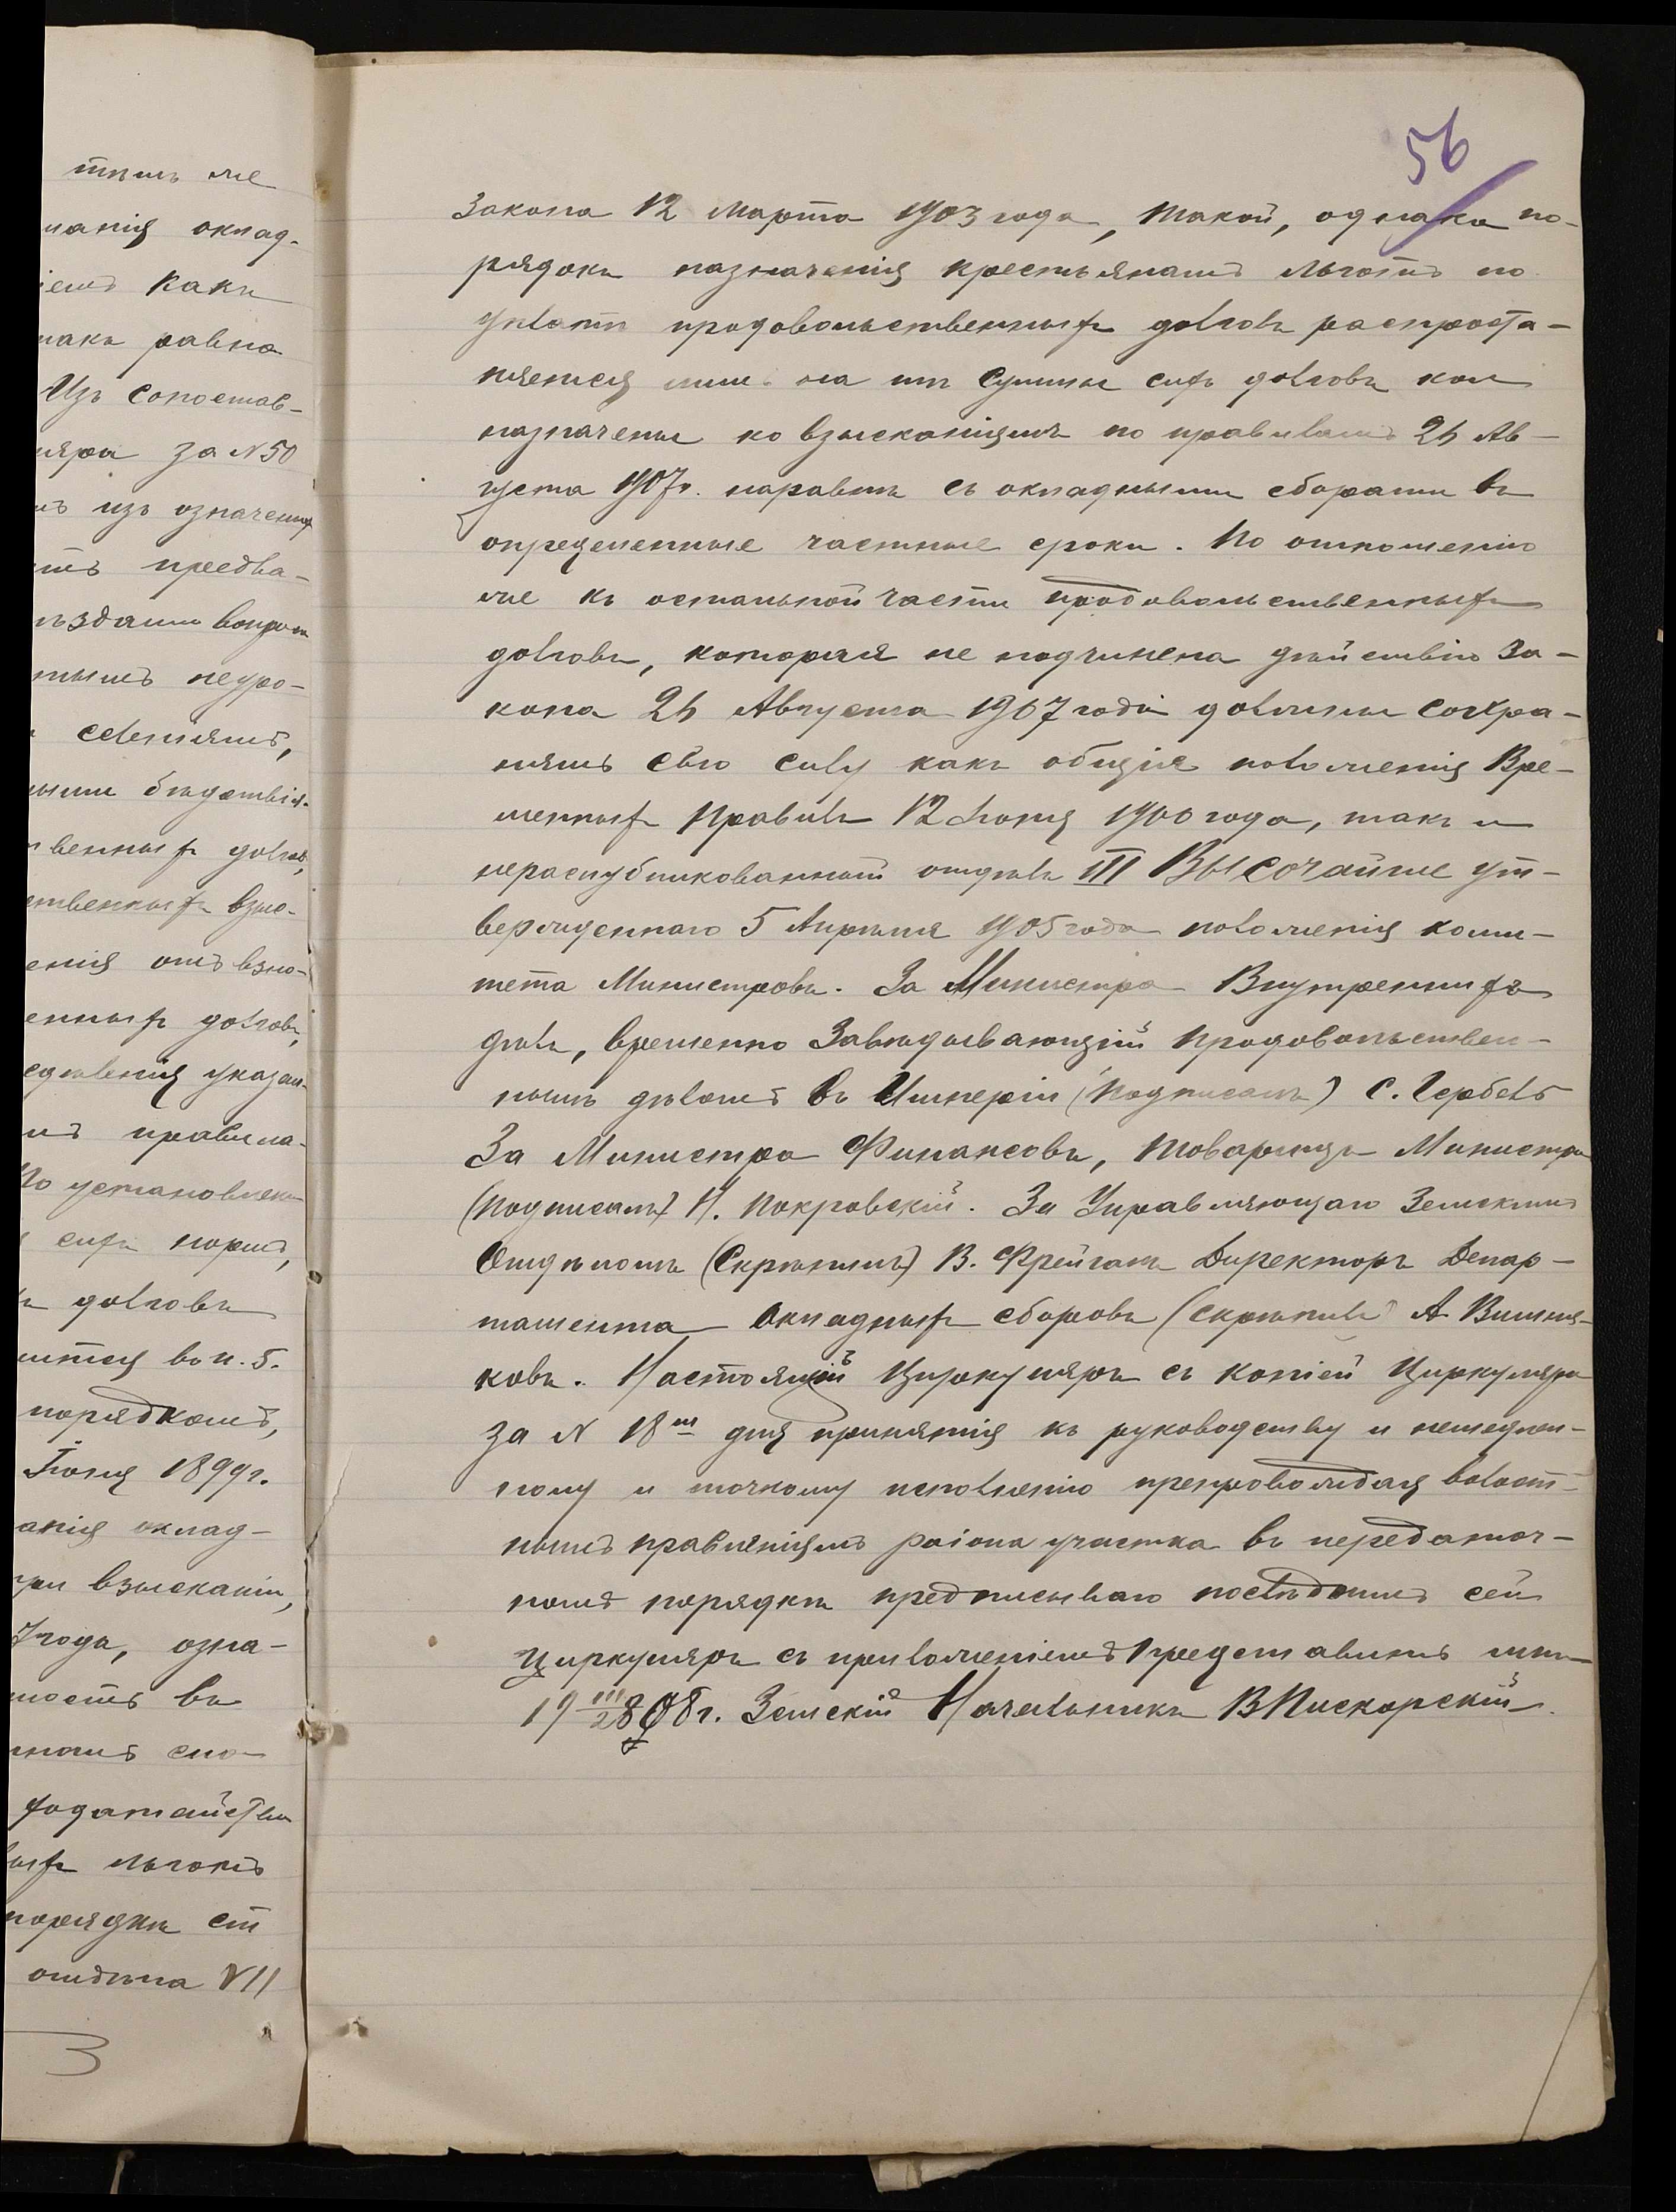 тѣмъ же
манія оклад-
іемъ какъ
такъ равно
Изъ сопостав-
ляра за N 50
изъ означенных
предва-
вопро
неуро-
селеніямъ,
ными бѣдствія-
венныхъ долговъ,
ственныхъ взно-
енія отъ взно-
енныхъ долговъ,
указан-
правила-
По установлені
сихъ нормъ,
долговъ
ится въ п. 5.
порядкомъ,
Іюня 1899 г.
анія оклад-
при взысканіи,
7 года, озна-
ность въ
спо-
ходатайства
ыхъ льготъ
порядкѣ ст
отдѣла VII
3
56
Закона 12 Марта 1903 года, такой, однако по-
рядокъ назначенія крестьянамъ льготъ по
уплатѣ продовольственныхъ долговъ распростра-
няется лишь на тѣ суммы сихъ долговъ кои
назначены ко взысканіямъ по правиламъ 26 Ав-
густа 1907 г. наравнѣ съ окладными сборами въ
опредѣленные частные сроки. По отношенію
же къ остальной части продовольственныхъ
долговъ, которая не подчинена дѣйствію За-
кона 26 Августа 1907 года должны сохра-
нять свою силу какъ общія положенія Вре-
менныхъ Правилъ 12 Іюня 1900 года, такъ и
нераспубликованный отдѣлъ III Высочайше ут-
вержденнаго 5 Апрѣля 1905 года положенія коми-
тета Министровъ. За Министра Внутреннихъ
дѣлъ, временно Завѣдывающій продовольствен-
нымъ дѣломъ въ Имперіи (подписалъ) С. Гербель
За Министра Финансовъ, Товарищъ Министра
(подписалъ) Н. Покровскій. За Управляющаго Земскимъ
Отдѣломъ (Скрѣпилъ) В. Фрейгангъ Директоръ Депар-
тамента Окладныхъ сборовъ (скрѣпилъ) А Вишня-
ковъ. Настоящій Циркуляръ съ копіей Циркуляра
за N 18м для принятія къ руководству и немедлен-
ному и точному исполненію препровождая волост-
нымъ правленіямъ раіона участка въ передаточ-
номъ порядкѣ предписываю послѣднимъ сей
циркуляръ съ приложеніемъ представить мнѣ
19 III/28 08 г. Земскій Начальникъ В Пискорскій.